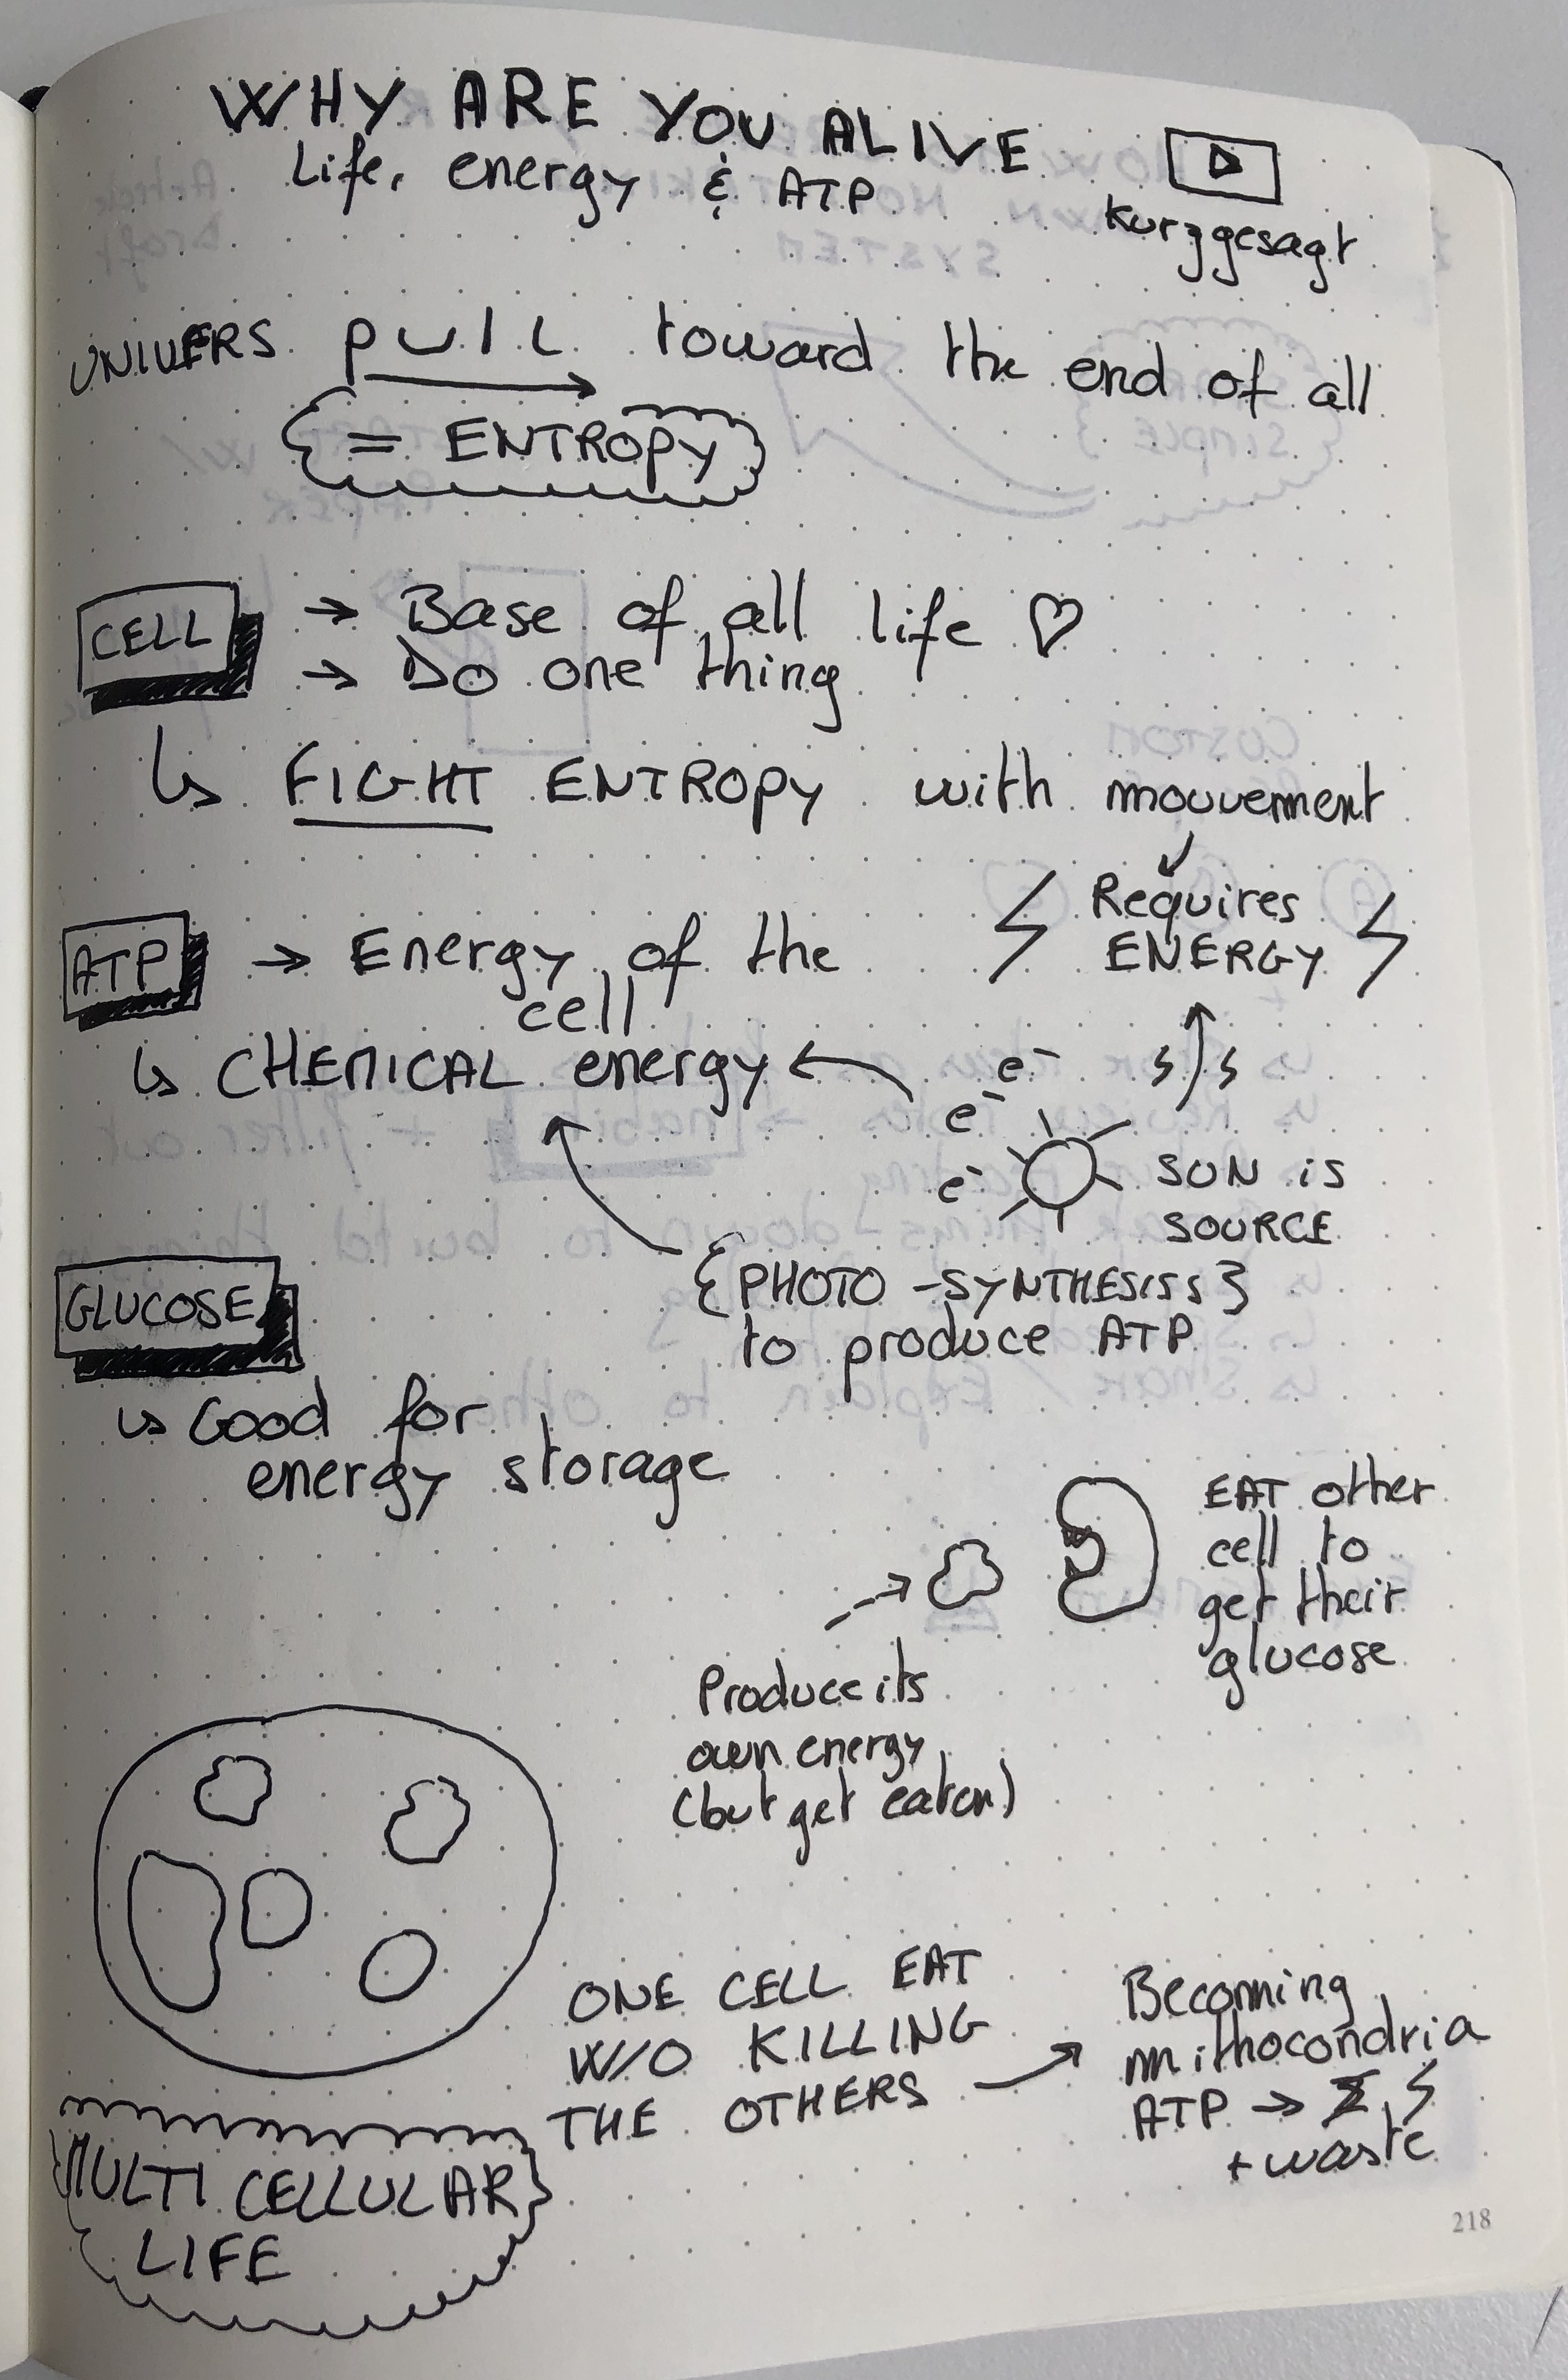 WHY ARE YOU ALIVE
Life, energy & ATP
kurzgesagt
UNIVERS pull toward the end of all
= ENTROPY
CELL
→ Base of all life ♡
→ Do one thing
↳ FIGHT ENTROPY with mouvement
Requires
ENERGY
ATP
→ Energy of the
cell
↳ CHEMICAL energy
e-
e-
e-
SUN is
SOURCE
{PHOTO-SYNTHESISS}
to produce ATP
GLUCOSE
↳ Good for
energy storage
EAT other
cell to
get their
glucose
Produce its
own energy
(but get eaten)
ONE CELL EAT
W/O KILLING
THE OTHERS →
Becoming
mithocondria
ATP →
+ waste
MULTI CELLULAR
LIFE
218